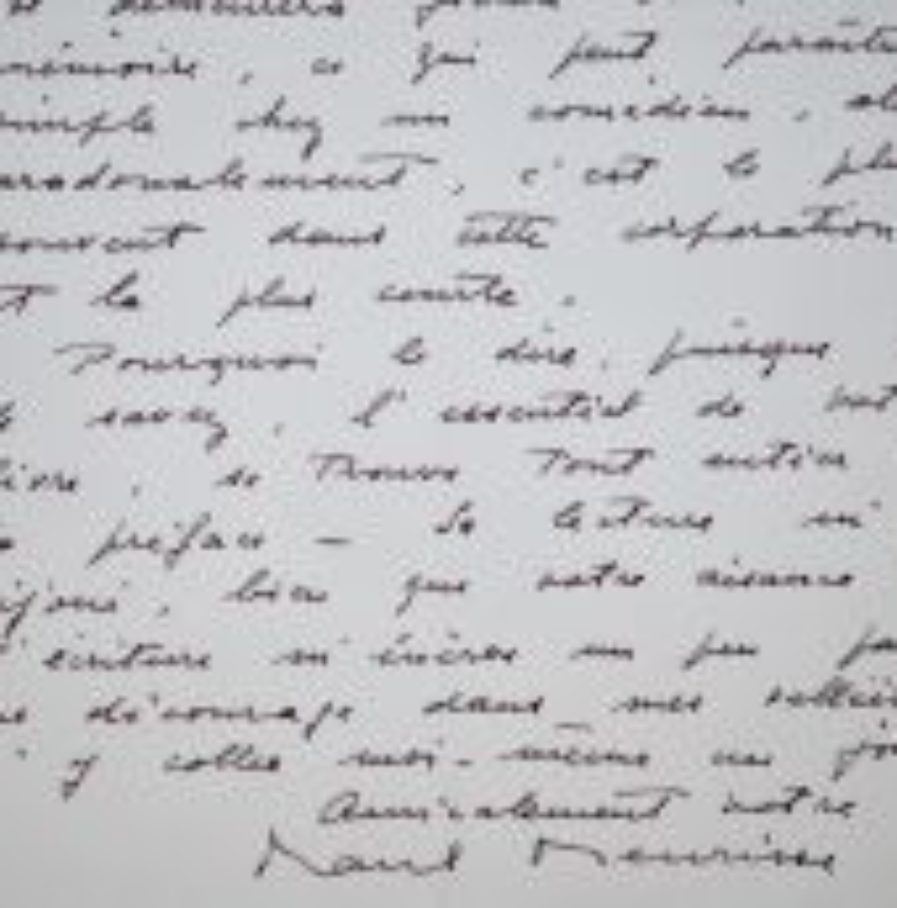 mémoire, ce qui peut paraître
simple chez un comédien,
aradoxalement, c'est le plu
souvent dans cette corporation
t la plus courte.
Pourquoi le dire, puisque
savez, l'essentiel de vot
livre, se trouve tout entier
préface - Sa lecture m'
bien que votre aisance
écriture m'énerve un peu
décourage dans mes
y coller moi-même un jou
Amicalement votre
Paul Meurisse